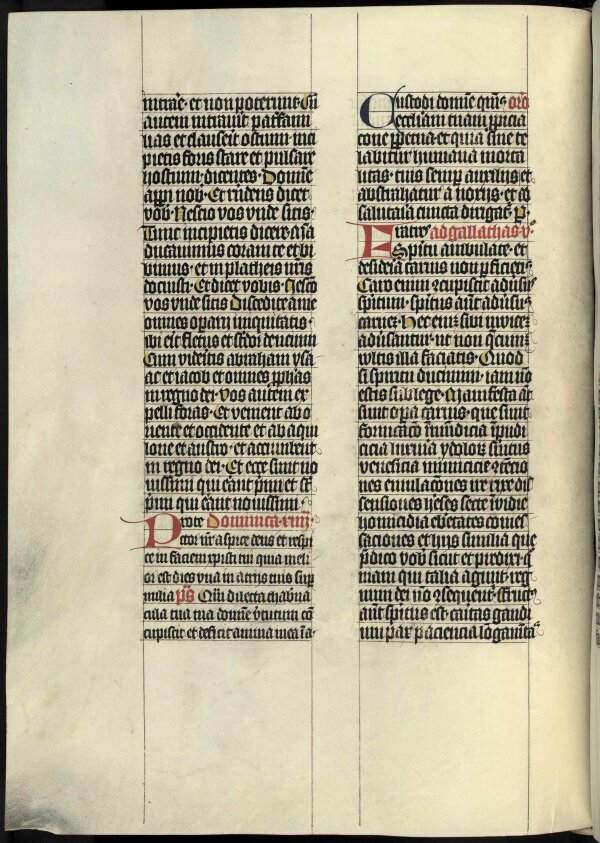 intrare et non poterunt Cū
autem intraverit pater fami
lias et clauserit ostium inci
pietis foris stare et pulsare
hostium dicentes Domine
aperi nob Et rn̄dens dicet
vob Nescio vos vnde sitis
Tunc incipietis dicere mā
ducauimus coram te et bi
bimus et in plateis nr̄is
docuisti Et dicet vobis Nescio
vos vnde sitis Discedite a me
omnes operarii iniquitatis
ibi erit fletus et stridor dencium
Cum videritis abraham ysa
ac et iacob et omnes pphās
in regno dei vos autem ex
pelli foras Et venient ab o
riente et occidente et ab aqui
lone et austro et accumbent
in regno dei Et ecce sunt no
uissimi qui erāt primi et sūt
primi qui erāt nouissimi
Prote Dominica xiiij
ctor nr̄ aspice deus et respi
ce in faciem xpisti tui quia meli
or est dies vna in atriis tuis sup
milia ps Qm̄ dilecta thab'na
cula tua domine v'tutum cō
cupiscit et deficit anima mea ī a
Custodi domine qs orō
ecclesiam tuam ppicia
cione ppetua et quia sine te
labitur humana morta
litas tuis semp auxiliis et
abstrahatur a noxiis et ad
salutaria cuncta dirigat' P
Fratres ad gallathas v
Spiritu ambulate et
desideria carnis non pficietis
Caro enim 9cupiscit adu'sus
spiritum spiritus aūt adu'sus
carnē Hec enī sibi inuicē
adu'santur ut non quecumq
vultis illa faciatis Quod
si spiritu ducimini iam nō
estis sub lege Manifesta aūt
sunt opa carnis que sunt
fornicacō immūdicia īpudi
cicia luxuria ydolor' s'uitus
veneficia inimicicie 9tēcio
nes emulacōnes ire rixe dis
sensiones hereses secte īvidie
homicidia ebrietates comes
saciones et hiis similia que
pdico vob sicut et predixi q
niam qui talia agunt reg
num dei nō 9sequent' Fruct9
aūt spiritus est caritas gaudi
um pax paciencia lōganimita